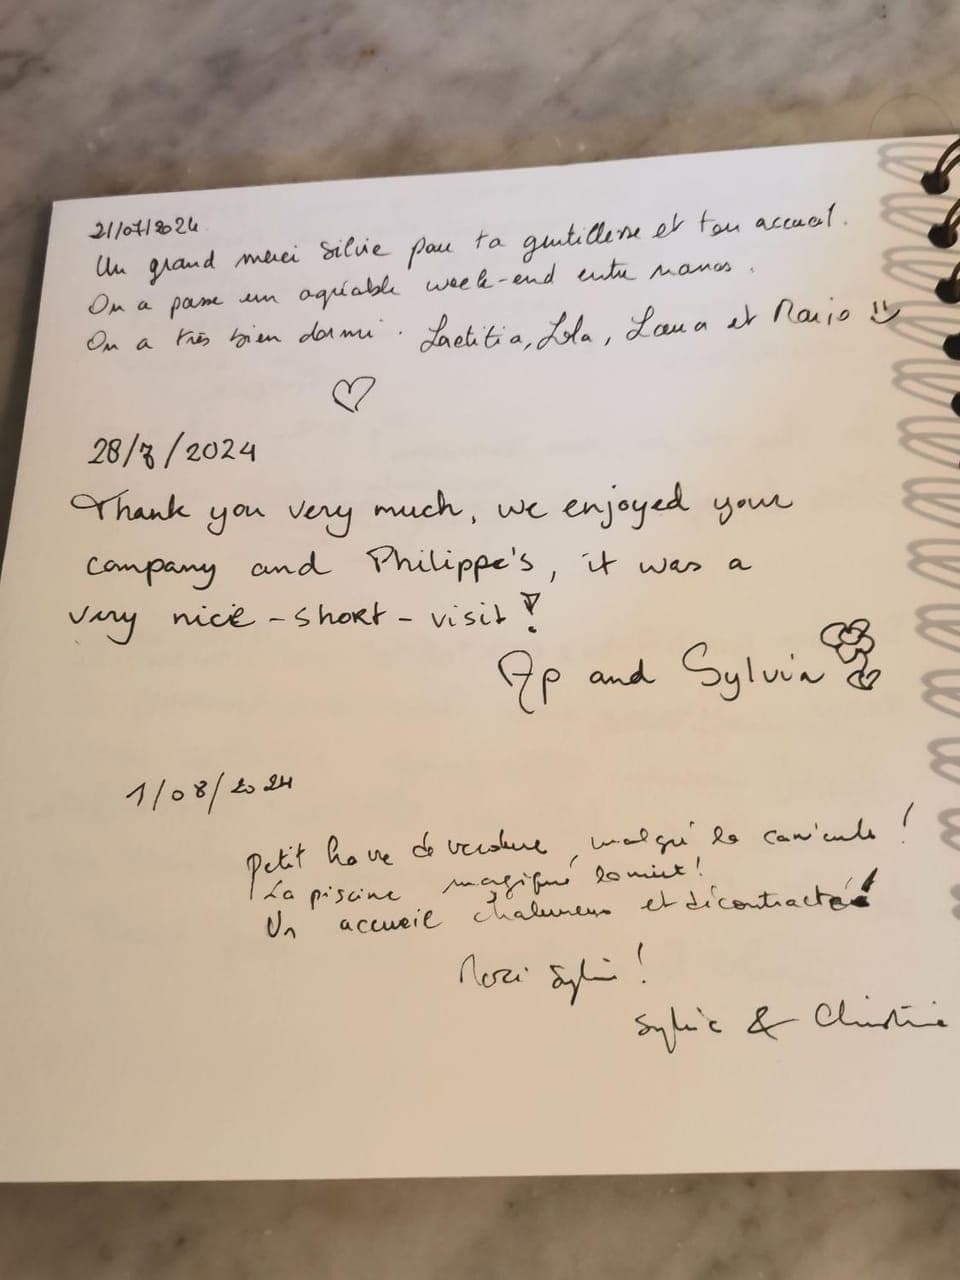 21/07/2024
Un grand merci Silvie pour ta gentillesse et ton accueil.
On a passé un agréable week-end entre nanas.
On a très bien dormi. Laetitia, Lola, Laura et
28/7/2024
Thank you very much, we enjoyed your
company and Philippe's, it was a
very nice - short - visit!
and Sylvia
1/08/2024
Petit havre de verdure, malgré la canicule!
La piscine magique la nuit!
Un accueil chaleureux et décontracté!
Merci Sylvie!
Sylvie & Christine